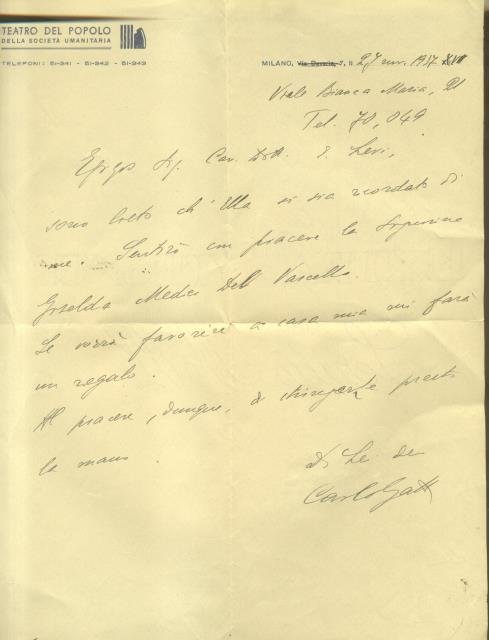 TEATRO DEL POPOLO
DELLA SOCIETÀ UMANITARIA
TELEFONI: 51-941 - 51-942 - 51-943
MILANO, Via Daverio, 7, li 27 nov. 1937 XVI
Viale Bianca Maria, 21
Tel. 70,049
Egregio Sig. Cav. Dott. E. Levi,
sono lieto ch'Ella si sia ricordato di
me. Sentirò con piacere la Signorina
Griselda Medici Del Vascello.
Se vorrà favorire a casa mia mi farà
un regalo.
Al piacere, dunque, di stringerLe presto
la mano.
Di Lei dev
Carlo Gatti